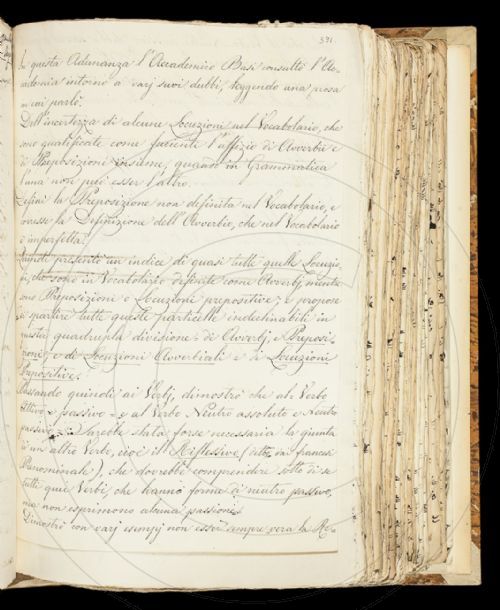 331.
In questa Adunanza l'Accademico Basi consultò l'Ac-
cademia intorno a varj suoi dubbi, leggendo una prosa
in cui parlò:
Dell'incertezza di alcune Locuzioni nel Vocabolario, che
sono qualificate come facienti l'uffizio di Avverbio e
di Preposizione insieme, quando in Grammatica
l'una non può esser l'altro.
la Preposizione non definita nel Vocabolario, e
la Definizione dell'Avverbio, che nel Vocabolario
è imperfetta.
Quindi presentò un indice di quasi tutte quelle Locuzio-
ni, che sono in Vocabolario definite come Avverbj, mentre
sono Preposizioni o Locuzioni prepositive; e propose
di spartire tutte queste particelle indeclinabili in
questa quadrupla divisione: di Avverbj, e Preposi-
zioni, e di Locuzioni Avverbiali e di Locuzioni
Prepositive.
Passando quindi ai Verbj, dimostrò che al Verbo
Attivo e passivo e al Verbo Neutro assoluto e Neutro
passivo, sarebbe stata forse necessaria la giunta
d'un altro Verbo, cioè il Riflessivo (detto dai francesi
Pronominale), che dovrebbe comprendere sotto di se
tutti quei Verbi, che hanno forma di neutro passivo,
ma non esprimono alcuna passione.
Dimostrò con varj esempj non esser sempre vera la Re-